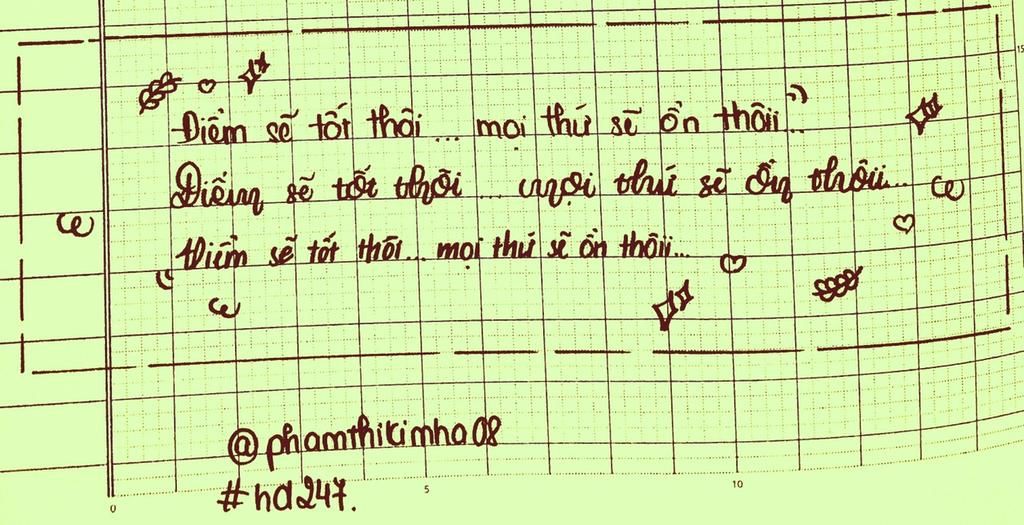 Điểm sẽ tốt thôi... mọi thứ sẽ ổn thôii...
Điểm sẽ tốt thôi... mọi thứ sẽ ổn thôii...
Điểm sẽ tốt thôi... mọi thứ sẽ ổn thôii...
@phamthikimha08
#ha247.
0 5 10 15